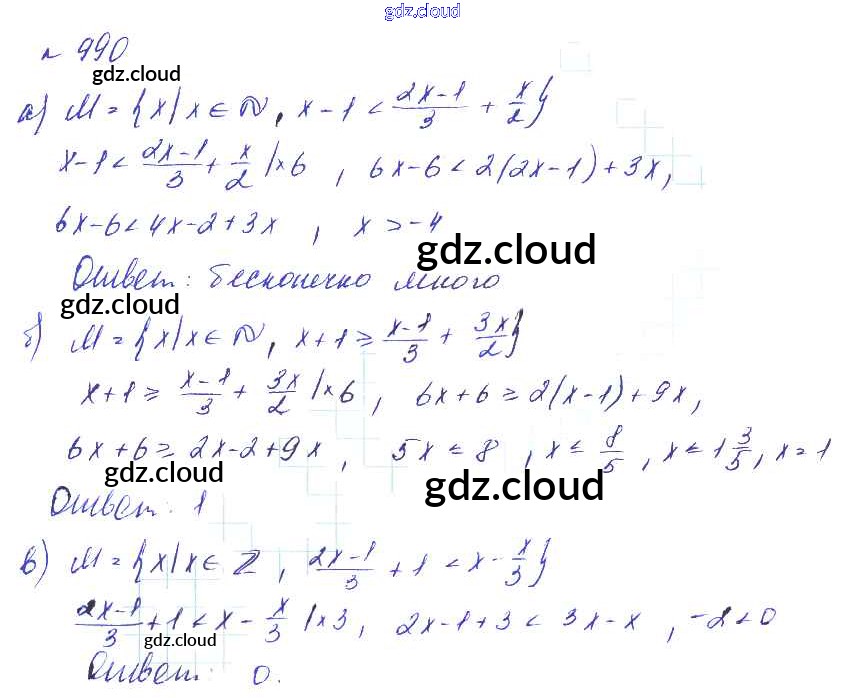 gdz.cloud
№ 990
gdz.cloud
а) M = {x | x ∈ N, x - 1 < (2x-1)/3 + x/2}
x - 1 < (2x-1)/3 + x/2 | ×6 , 6x - 6 < 2(2x-1) + 3x,
6x - 6 < 4x - 2 + 3x , x > -4
gdz.cloud
Ответ: бесконечно много
gdz.cloud
б) M = {x | x ∈ N, x + 1 ≥ (x-1)/3 + 3x/2}
x + 1 ≥ (x-1)/3 + 3x/2 | ×6 , 6x + 6 ≥ 2(x-1) + 9x,
6x + 6 ≥ 2x - 2 + 9x , 5x ≤ 8 , x ≤ 8/5 , x ≤ 1 3/5, x = 1
gdz.cloud
gdz.cloud
Ответ: 1
в) M = {x | x ∈ Z, (2x-1)/3 + 1 < x - x/3}
(2x-1)/3 + 1 < x - x/3 | ×3, 2x - 1 + 3 < 3x - x , -2 < 0
gdz.cloud
Ответ: 0.
gdz.cloud